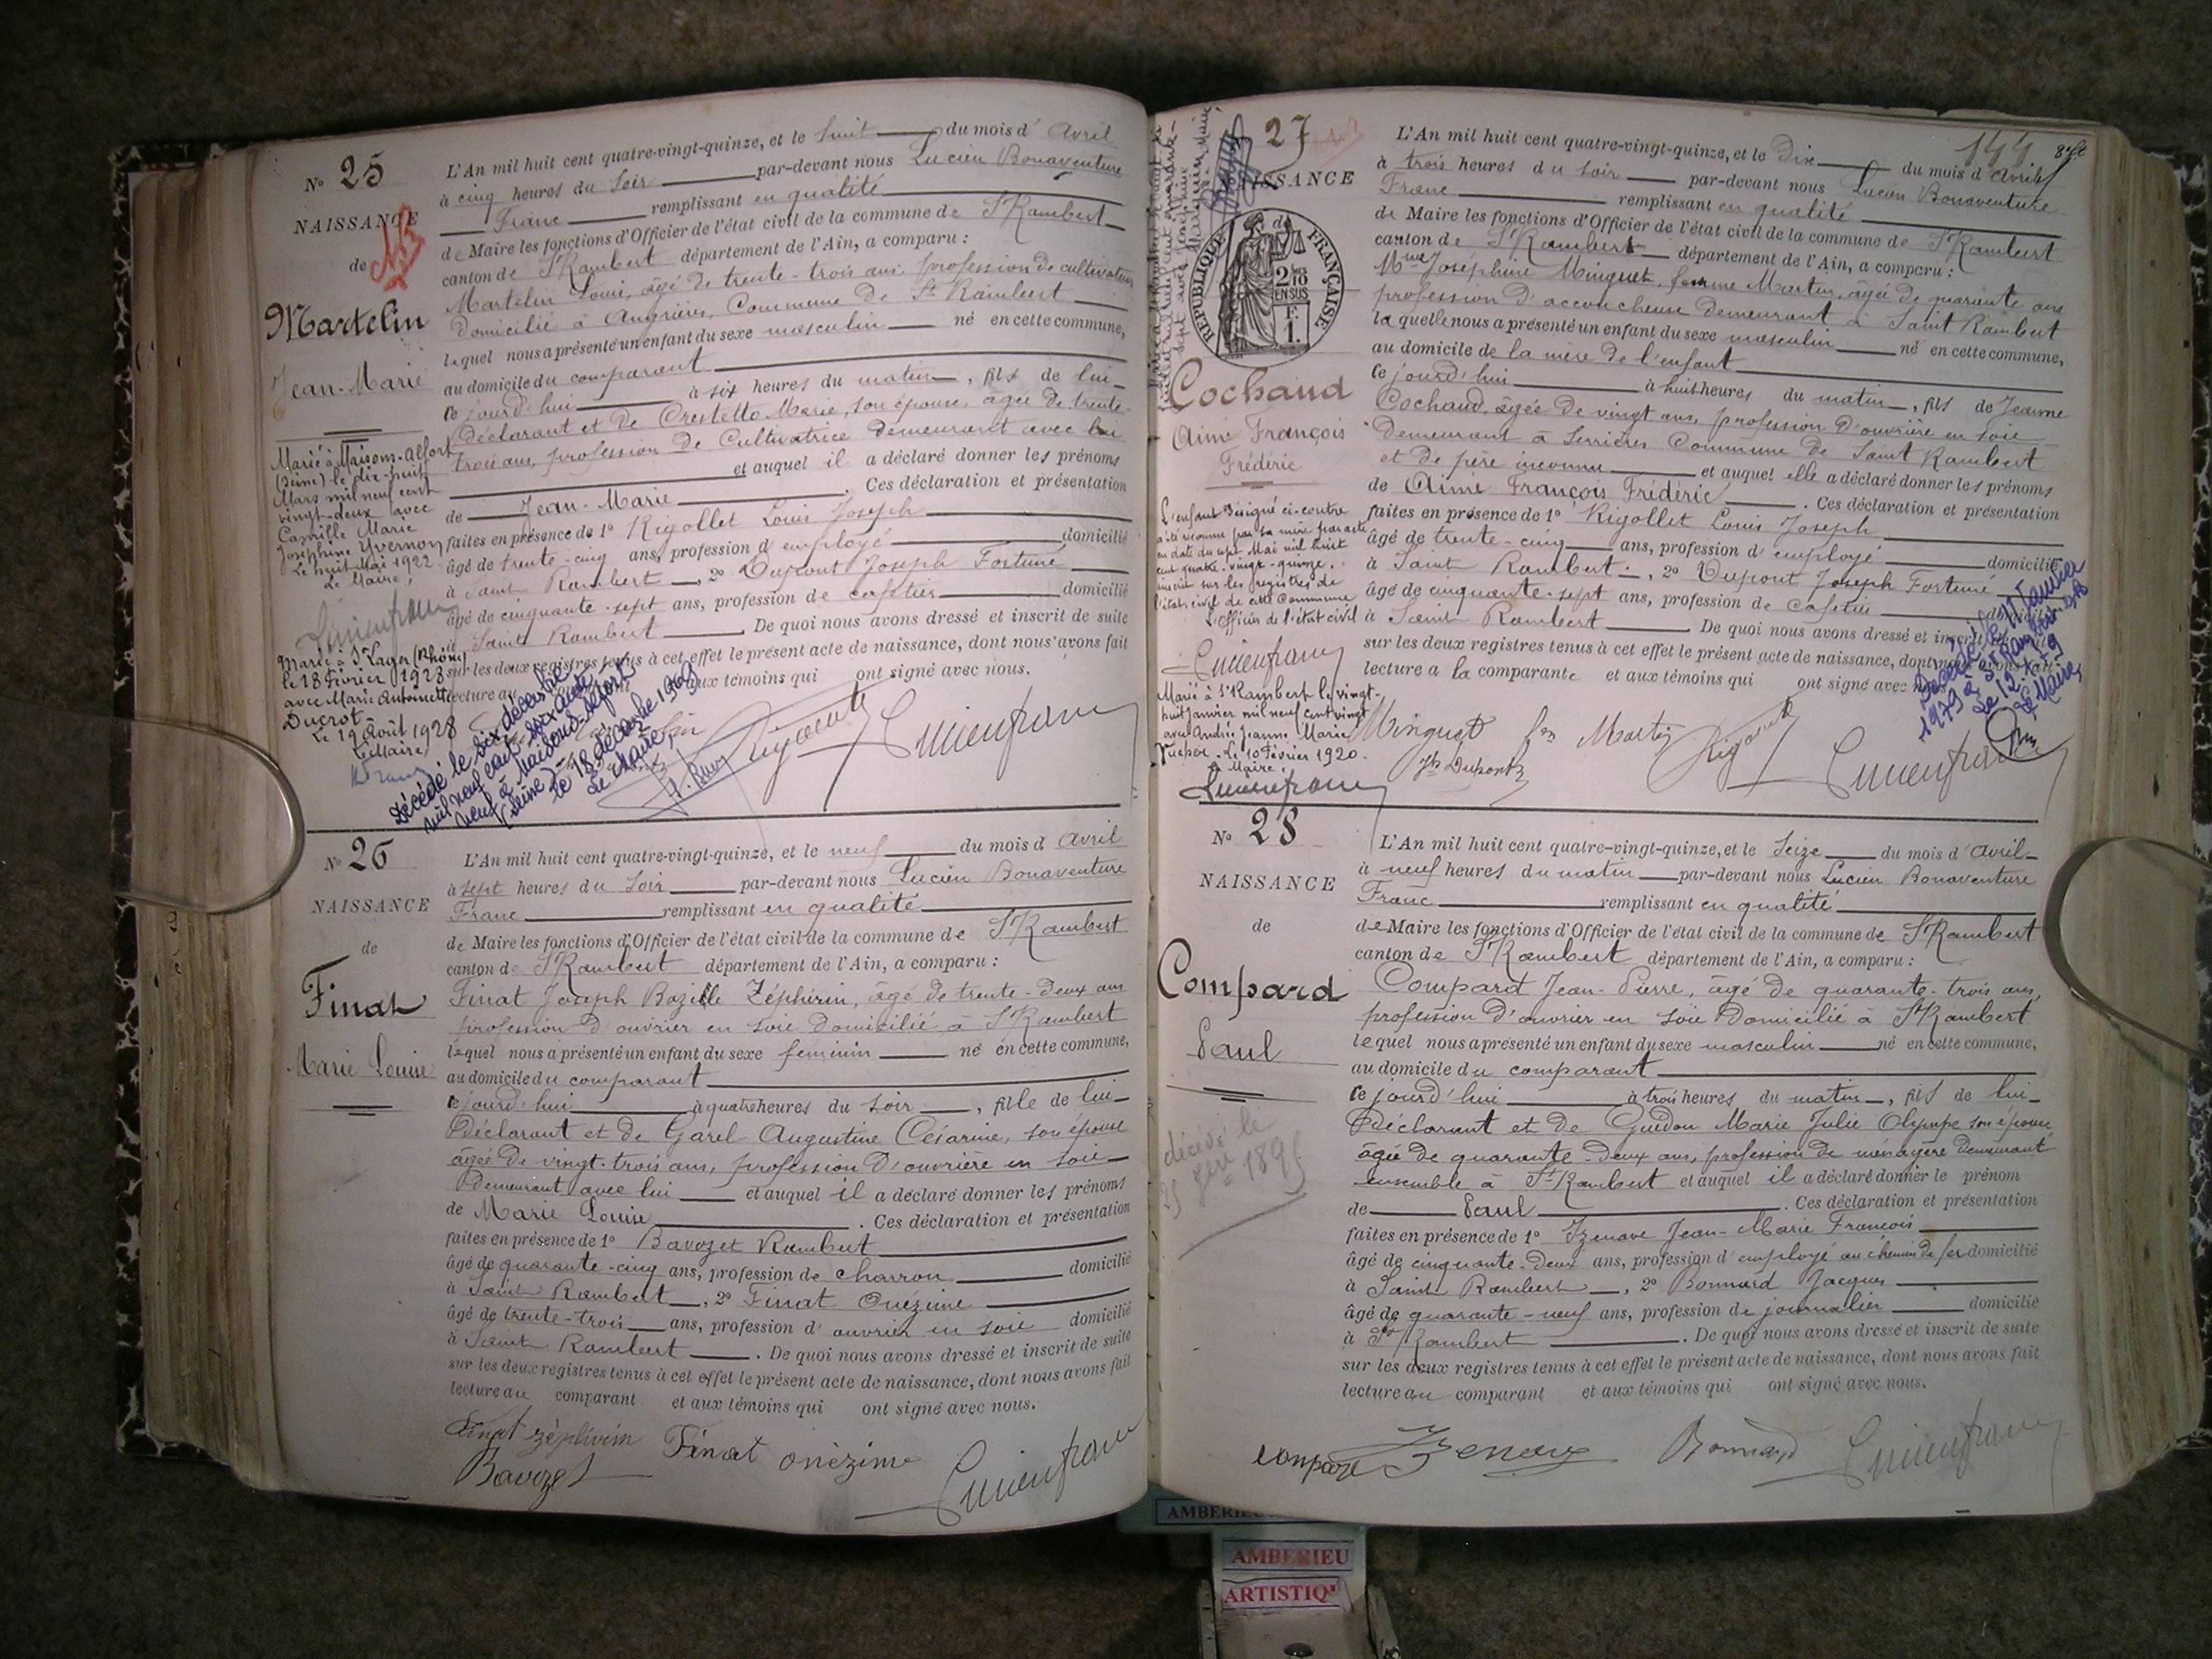 No 25
NAISSANCE
de
Martelin
Jean-Marie
Marié à Maisons-Alfort
(Seine) le dix-huit
Mars mil neuf cent
vingt-deux avec
Camille Marie
Joséphine Yvernon
Le huit Mai 1922
Le Maire,
Lucien franc
Marié à St Lager (Rhône)
le 18 Février 1928
avec Marie Antoinette
Ducrot
Le 19 Août 1928
Le Maire
L'An mil huit cent quatre-vingt-quinze, et le huit du mois d'Avril
à cinq heures du soir par-devant nous Lucien Bonaventure
Franc remplissant en qualité
de Maire les fonctions d'Officier de l'état civil de la commune de St Rambert
canton de St Rambert département de l'Ain, a comparu :
Martelin Louis, âgé de trente-trois ans, profession de cultivateur
domicilié à Angrières, Commune de St Rambert
lequel nous a présenté un enfant du sexe masculin né en cette commune,
au domicile du comparant
ce jourd'hui à six heures du matin, fils de lui
déclarant et de Crestetto Marie, son épouse, âgée de trente-
trois ans, profession de Cultivatrice demeurant avec lui
et auquel il a déclaré donner les prénoms
de Jean-Marie. Ces déclaration et présentation
faites en présence de 1° Rigollet Louis Joseph
âgé de trente-cinq ans, profession d'employé domicilié
à Saint Rambert, 2° Dupont Joseph Fortuné
âgé de cinquante-sept ans, profession de cafetier domicilié
à Saint Rambert. De quoi nous avons dressé et inscrit de suite
sur les deux registres tenus à cet effet le présent acte de naissance, dont nous avons fait
lecture au aux témoins qui ont signé avec nous.
Décédé le six décembre
mil neuf cent soixante
neuf à Maisons-Alfort
(Seine)
le 18 décembre 1969
Le Maire,
Lucien franc
No 26
NAISSANCE
de
Finat
Marie Louise
L'An mil huit cent quatre-vingt-quinze, et le neuf du mois d'Avril
à sept heures du soir par-devant nous Lucien Bonaventure
Franc remplissant en qualité
de Maire les fonctions d'Officier de l'état civil de la commune de St Rambert
canton de St Rambert département de l'Ain, a comparu :
Finat Joseph Bazille Zéphirin, âgé de trente-deux ans
profession d'ouvrier en soie domicilié à St Rambert
lequel nous a présenté un enfant du sexe féminin né en cette commune,
au domicile du comparant
ce jourd'hui à quatre heures du soir, fille de lui
déclarant et de Garel Augustine Césarine, son épouse
âgée de vingt-trois ans, profession d'ouvrière en soie
demeurant avec lui et auquel il a déclaré donner les prénoms
de Marie Louise. Ces déclaration et présentation
faites en présence de 1° Bavozet Rambert
âgé de quarante-cinq ans, profession de charron domicilié
à Saint Rambert, 2° Finat Onézime
âgé de trente-trois ans, profession d'ouvrier en soie domicilié
à Saint Rambert. De quoi nous avons dressé et inscrit de suite
sur les deux registres tenus à cet effet le présent acte de naissance, dont nous avons fait
lecture au comparant et aux témoins qui ont signé avec nous.
Finat zéphirin Finat onézime
Bavozet Lucien franc
144
27
NAISSANCE
RÉPUBLIQUE FRANÇAISE
2/10 EN SUS
F. 1.
Cochaud
Aimé François
Frédéric
L'enfant désigné ci-contre
a été reconnu par sa mère par acte
en date du sept Mai mil huit
cent quatre-vingt-quinze,
inscrit sur les registres de
l'état civil de cette Commune
L'Officier de l'état civil
Lucien franc
Marié à St Rambert le vingt-
huit janvier mil neuf cent vingt
avec Andrée Jeanne Marie
Le 10 Février 1920.
Le Maire,
Lucien franc
L'An mil huit cent quatre-vingt-quinze, et le Dix du mois d'Avril
à trois heures du soir par-devant nous Lucien Bonaventure
Franc remplissant en qualité
de Maire les fonctions d'Officier de l'état civil de la commune de St Rambert
canton de St Rambert département de l'Ain, a comparu :
Mme Joséphine Minguet, femme Martin, âgée de quarante ans
profession d'accoucheuse demeurant à Saint Rambert
laquelle nous a présenté un enfant du sexe masculin né en cette commune,
au domicile de la mère de l'enfant
ce jourd'hui à huit heures du matin, fils de Jeanne
Cochaud, âgée de vingt ans, profession d'ouvrière en soie
demeurant à Serrières Commune de Saint Rambert
et de père inconnu et auquel elle a déclaré donner les prénoms
de Aimé François Frédéric. Ces déclaration et présentation
faites en présence de 1° Rigollet Louis Joseph
âgé de trente-cinq ans, profession d'employé domicilié
à Saint Rambert, 2° Dupont Joseph Fortuné
âgé de cinquante-sept ans, profession de cafetier domicilié
à Saint Rambert. De quoi nous avons dressé et inscrit
sur les deux registres tenus à cet effet le présent acte de naissance, dont nous avons fait
lecture a la comparante et aux témoins qui ont signé avec
Décédé le 11 Janvier
1979 à St Rambert
Le Maire,
Minguet fme Martin
Jh Dupont
Lucien franc
No 28
NAISSANCE
de
Compard
Paul
décédé le
1895
L'An mil huit cent quatre-vingt-quinze, et le Seize du mois d'Avril
à neuf heures du matin par-devant nous Lucien Bonaventure
Franc remplissant en qualité
de Maire les fonctions d'Officier de l'état civil de la commune de St Rambert
canton de St Rambert département de l'Ain, a comparu :
Compard Jean-Pierre, âgé de quarante-trois ans,
profession d'ouvrier en soie domicilié à St Rambert
lequel nous a présenté un enfant du sexe masculin né en cette commune,
au domicile du comparant
ce jourd'hui à trois heures du matin, fils de lui
déclarant et de Guidon Marie Julie Olympe son épouse
âgée de quarante-deux ans, profession de ménagère demeurant
ensemble à St Rambert et auquel il a déclaré donner le prénom
de Paul. Ces déclaration et présentation
faites en présence de 1° Izenave Jean-Marie François
âgé de cinquante-deux ans, profession d'employé au chemin de fer domicilié
à Saint Rambert, 2° Bonnard Jacques
âgé de quarante-neuf ans, profession de journalier domicilié
à St Rambert. De quoi nous avons dressé et inscrit de suite
sur les deux registres tenus à cet effet le présent acte de naissance, dont nous avons fait
lecture au comparant et aux témoins qui ont signé avec nous.
Bonnard Lucien franc
AMBERIEU
AMBERIEU
ARTISTIQ